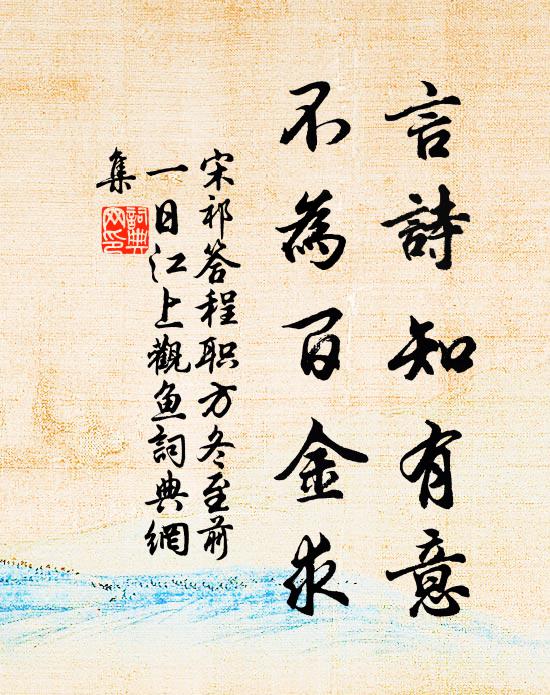 言詩知有意
不為百金求
宋祁答程职方冬至前
一日江上觀鱼詞典網
集
詞典
网印